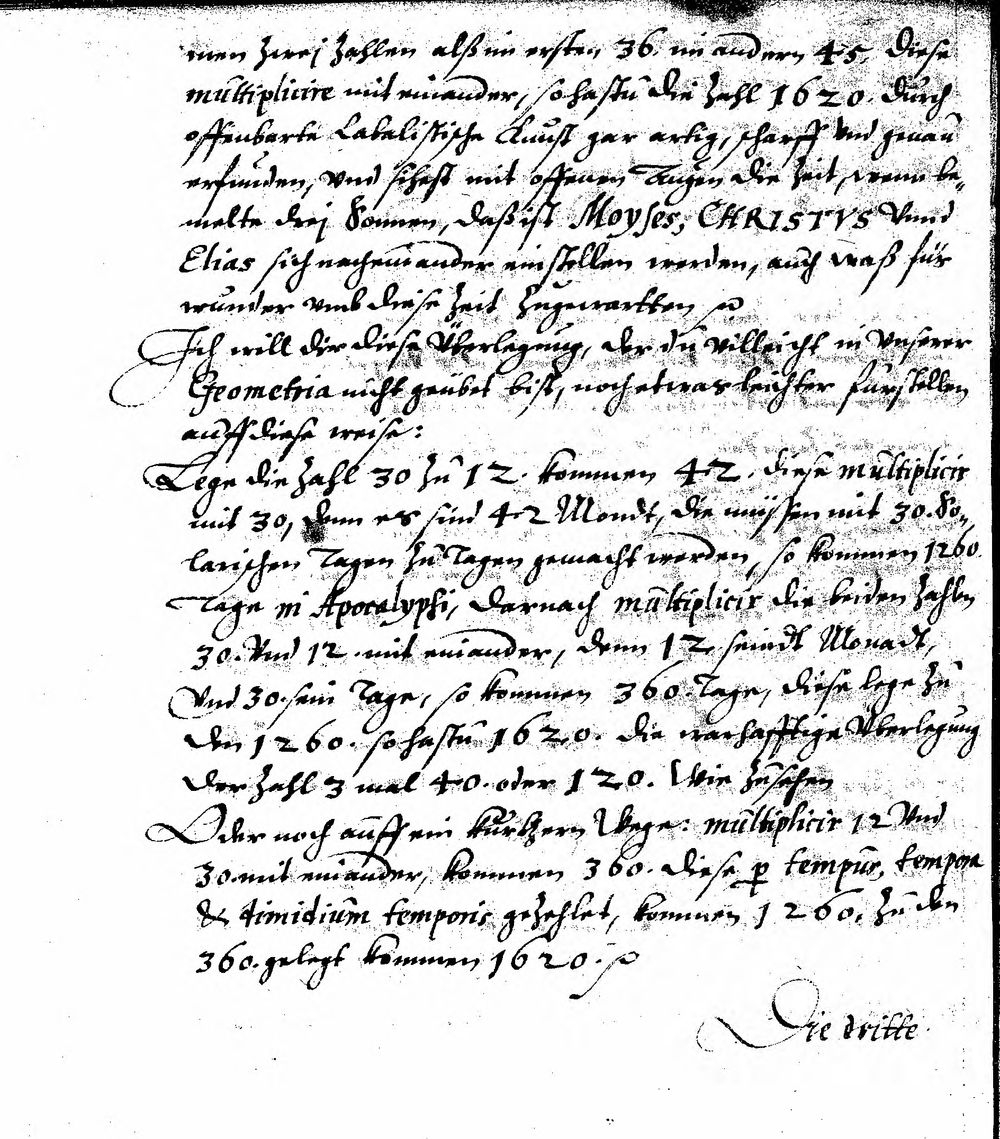 men zwej zahlen alß im ersten 36. im andern 45. diese
multiplicire mit einander, so hastu die zahl 1620. durch
offenbarte Cabalistische Kunst gar artig, scharff vnd genau
erfunden, vnd sihest mit offenen Augen die Zeit, wenn be-
melte drej Sonnen, daß ist Moyses, CHRISTVS Vnnd
Elias sich nacheinander einstellen werden, auch waß für
wunder vmb diese Zeit zugewartten
Ich will dir diese Überlegung, der du villeicht in Vnserer
Geometria nicht geübet bist, noch etwas leichter fürstellen
auff diese weise:
Lege die zahl 30 zu 12. kommen 42. diese multiplicir
mit 30, denn es sind 42 Mondt, die müssen mit 30. So-
larischen Tagen zu Tagen gemacht werden, so kommen 1260.
Tage in Apocalypsi, darnach multiplicir die beiden zahln
30. Vnd 12. mit einander, denn 12 seindt Monadt,
Vnd 30. sein Tage, so kommen 360. Tage, diese lege zu
den 1260. so hastu 1620. die warhafftige Überlegung
der zahl 3 mal 40. oder 120. Wie zusehen
Oder noch auff ein kürtzern Wege: multiplicir 12 Vnd
30. mit einander, kommen 360. diese p tempus, tempora
& dimidium temporis gezehlet, kommen 1260. zu den
360. gelegt kommen 1620.
Die dritte.